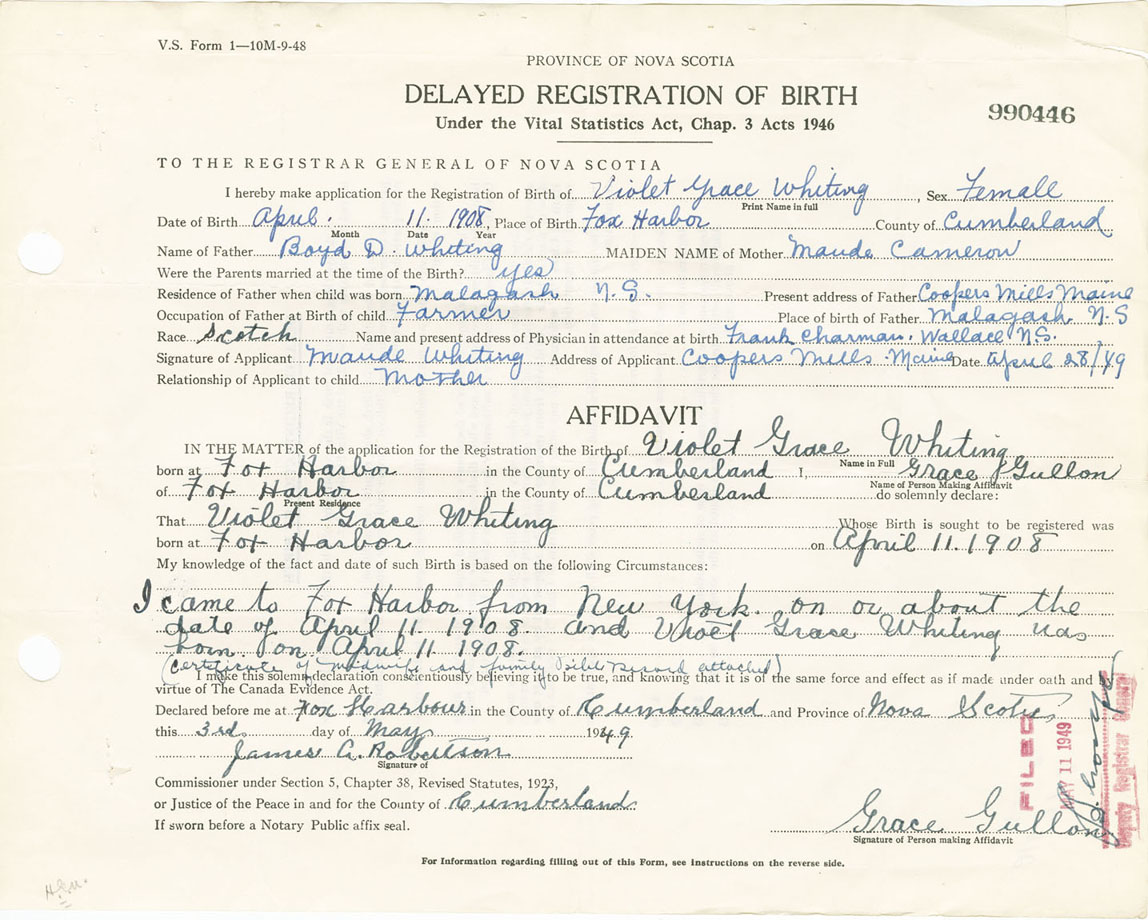 V.S. Form 1—10M-9-48
PROVINCE OF NOVA SCOTIA
DELAYED REGISTRATION OF BIRTH
990446
Under the Vital Statistics Act, Chap. 3 Acts 1946
TO THE REGISTRAR GENERAL OF NOVA SCOTIA
I hereby make application for the Registration of Birth of Violet Grace Whiting, Sex Female
Print Name in full
Date of Birth April. 11. 1908, Place of Birth Fox Harbor County of Cumberland
Month Date Year
Name of Father Boyd D. Whiting MAIDEN NAME of Mother Maude Cameron
Were the Parents married at the time of the Birth? yes
Residence of Father when child was born Malagash N.S. Present address of Father Coopers Mills Maine
Occupation of Father at Birth of child Farmer Place of birth of Father Malagash N.S
Race Scotch Name and present address of Physician in attendance at birth Frank Charman. Wallace N.S.
Signature of Applicant Maude Whiting Address of Applicant Coopers Mills Maine Date April 28/49
Relationship of Applicant to child Mother
AFFIDAVIT
IN THE MATTER of the application for the Registration of the Birth of Violet Grace Whiting
Name in Full
born at Fox Harbor in the County of Cumberland I, Grace Gullon
Name of Person Making Affidavit
of Fox Harbor in the County of Cumberland do solemnly declare:
Present Residence
That Violet Grace Whiting Whose Birth is sought to be registered was
born at Fox Harbor on April 11. 1908
My knowledge of the fact and date of such Birth is based on the following Circumstances:
I came to Fox Harbor from New York. on or about the
date of April 11. 1908. and Grace Whiting was
born on April 11. 1908.
(Certificate of Midwife and family Bible Record attached)
I make this solemn declaration conscientiously believing it to be true, and knowing that it is of the same force and effect as if made under oath and by
virtue of The Canada Evidence Act.
Declared before me at Fox Harbour in the County of Cumberland and Province of Nova Scotia
this 3rd day of May 1949
James A. Robertson
Signature of
Commissioner under Section 5, Chapter 38, Revised Statutes, 1923,
or Justice of the Peace in and for the County of Cumberland.
If sworn before a Notary Public affix seal.
Grace Gullon
Signature of Person making Affidavit
FILED
MAY 11 1949
Deputy Registrar General
For Information regarding filling out of this Form, see instructions on the reverse side.